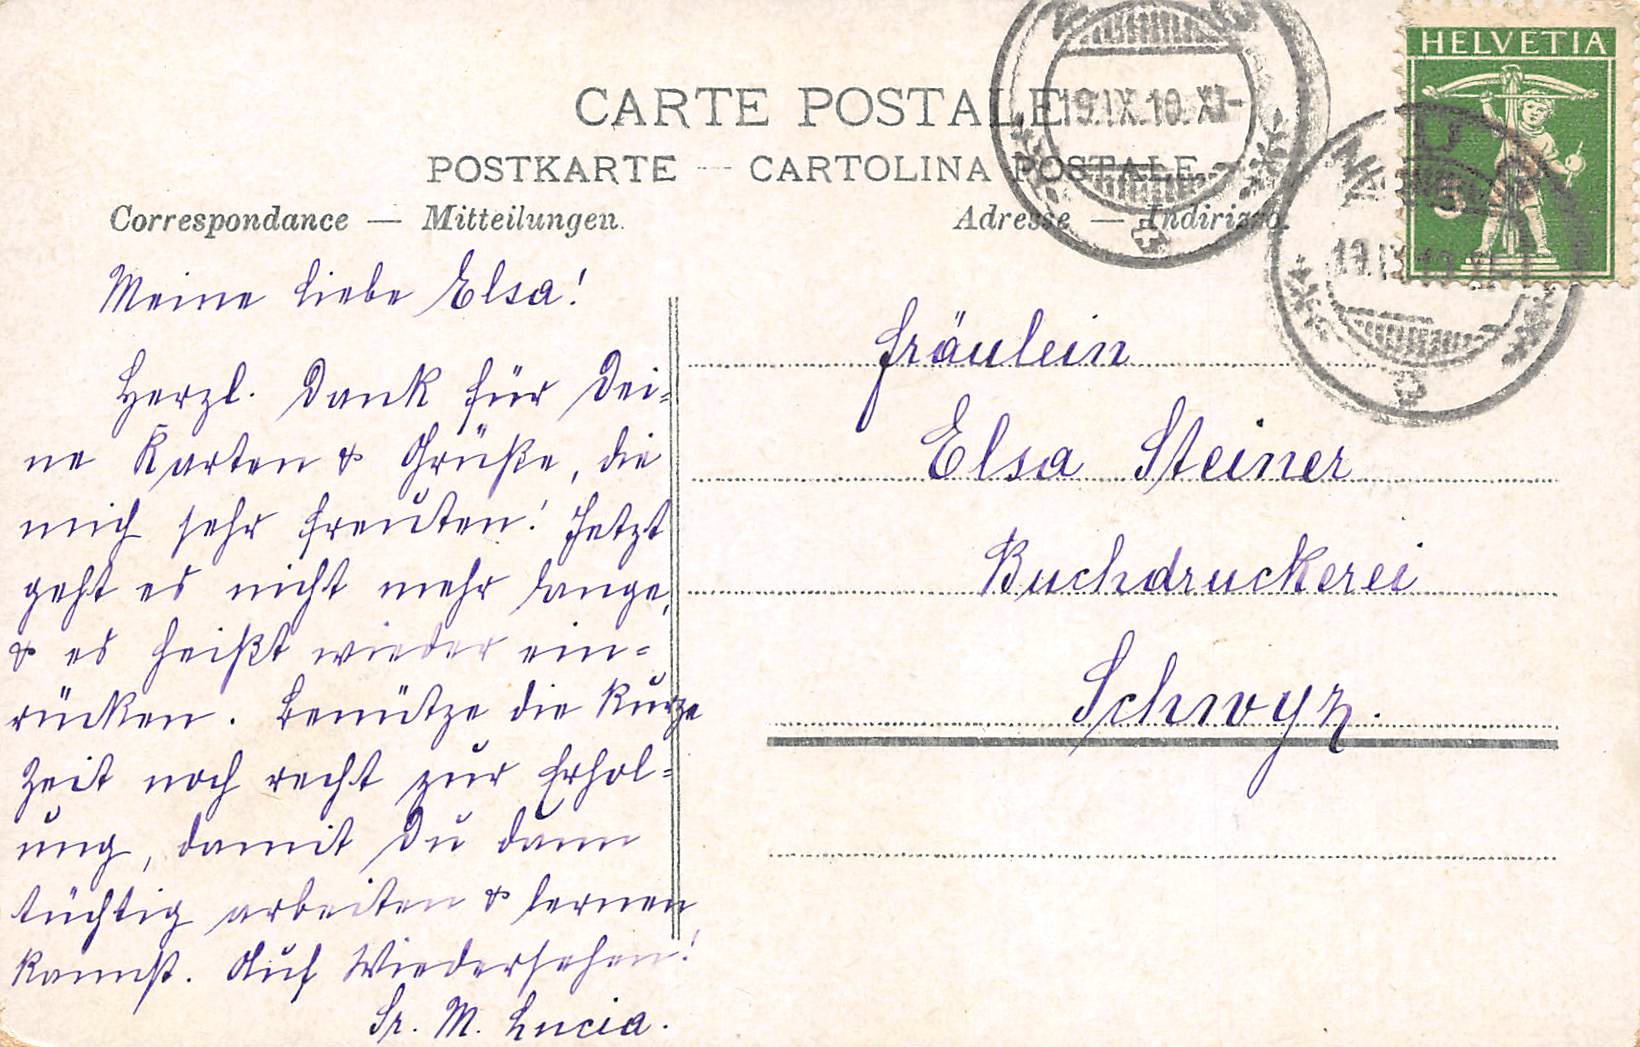 CARTE POSTALE
POSTKARTE — CARTOLINA POSTALE
Correspondance — Mitteilungen.
Adresse — Indirizzo.
HELVETIA
5
19.IX.10.XI-
Meine liebe Elsa!
Herzl. Dank für Dei-
ne Karten & Grüße, die
mich sehr freuten! Jetzt
geht es nicht mehr lange,
& es heißt wieder ein-
rücken. Benütze die kurze
Zeit noch recht zur Erhol-
ung, damit Du dann
tüchtig arbeiten & lernen
kannst. Auf Wiedersehen!
Sr. M. Lucia.
Fräulein
Elsa Steiner
Buchdruckerei
Schwyz.